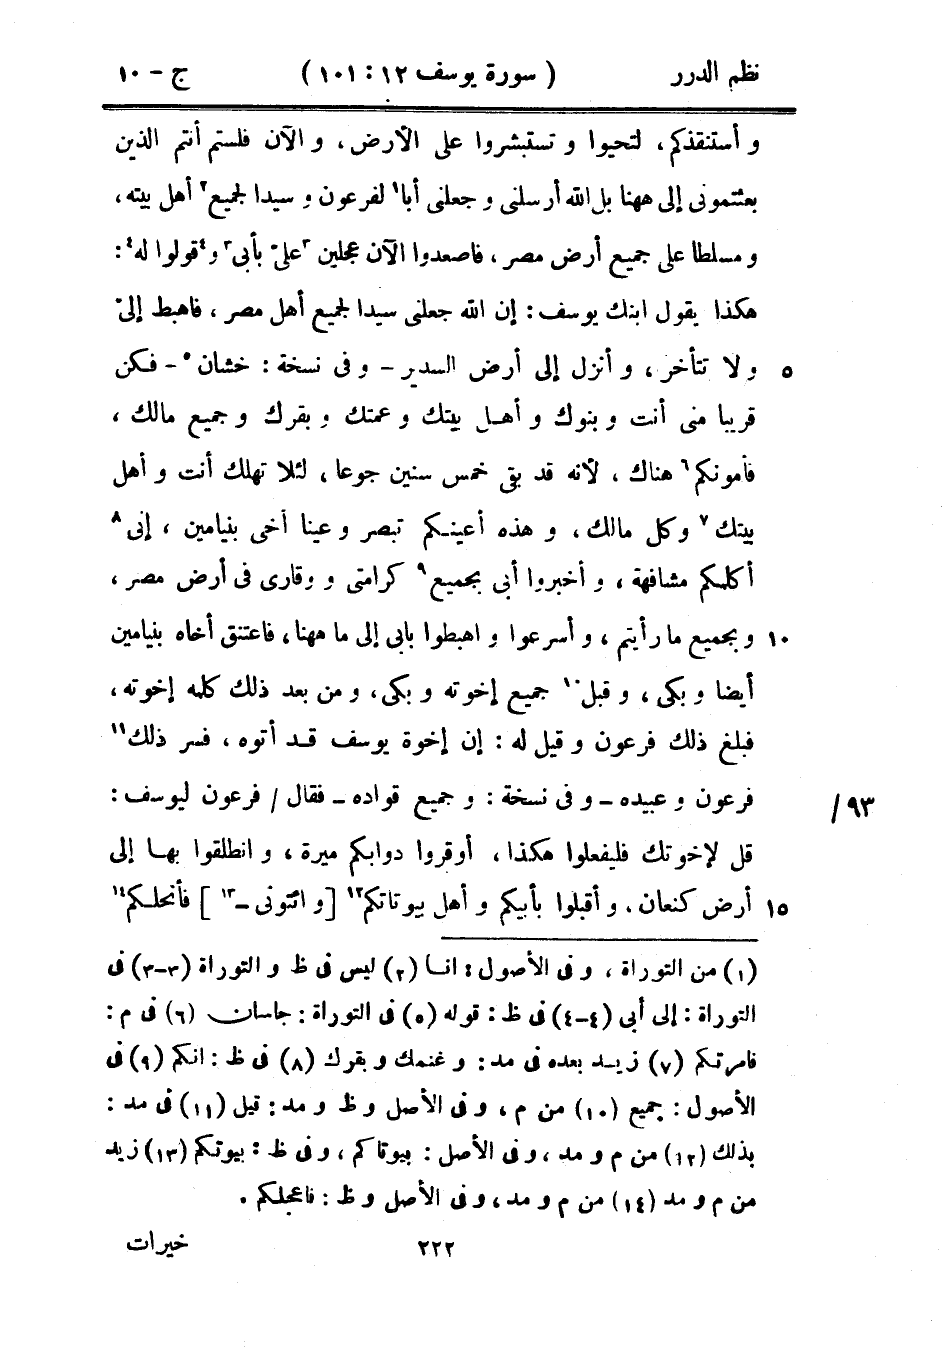 نظم الدرر ( سورة يوسف ١٢ : ١٠١ ) ج – ١٠
و أستنقذكم ، لتحيوا و تستبشروا على الأرض ، و الآن فلستم أنتم الذين
بعثتمونى إلى ههنا بل الله أرسلنى و جعلنى أبا١ لفرعون و سيدا لجميع٢ أهل بيته ،
و مسلطا على جميع أرض مصر ، فاصعدوا الآن عجلين ٣علىّ بأبى٣ و٤قولوا له٤ :
هكذا يقول ابنك يوسف : إن الله جعلنى سيدا لجميع أهل مصر ، فاهبط إلىّ
ولا تتأخر ، و أنزل إلى أرض السدير – و فى نسخة : خشان٥ – فكن ٥
قريبا منى أنت و بنوك و أهل بيتك و عمتك و بقرك و جميع مالك ،
فأمونكم٦ هناك ، لأنه قد بقى خمس سنين جوعا ، لئلا تهلك أنت و أهل
بيتك٧ وكل مالك ، و هذه أعينكم تبصر و عينا أخى بنيامين ، إنى٨
أكلمكم مشافهة ، و أخبروا أبى بجميع٩ كرامتى و وقارى فى أرض مصر ،
و بجميع ما رأيتم ، و أسرعوا و اهبطوا بابى إلى ما ههنا ، فاعتنق أخاه بنيامين ١٠
أيضا و بكى ، و قبل١٠ جميع إخوته و بكى ، و من بعد ذلك كلمه إخوته ،
فبلغ ذلك فرعون و قيل له : إن إخوة يوسف قد أتوه ، فسر ذلك١١
فرعون و عبيده – و فى نسخة : و جميع قواده – فقال / فرعون ليوسف : ٩٣/
قل لإخوتك فليفعلوا هكذا ، أوقروا دوابكم ميرة ، و انطلقوا بها إلى
أرض كنعان . و أقبلوا بأبيكم و أهل بيوتاتكم١٢ [ و ائتونى –١٣ ] فأنحلكم١٤ ١٥
(١) من التوراة ، و فى الأصول : انا (٢) ليس فى ظ و التوراة (٣–٣) فى
التوراة : إلى أبى (٤–٤) فى ظ : قوله (٥) فى التوراة : جاسان (٦) فى م :
فامرتكم (٧) زيد بعده فى مد : و غنمك و بقرك (٨) فى ظ : انكم (٩) فى
الأصول : جميع (١٠) من م ، و فى الأصل و ظ و مد : قيل (١١) فى مد :
بذلك (١٢) من م و مد ، و فى الأصل : بيوتاكم ، و فى ظ : بيوتكم (١٣) زيد
من م و مد (١٤) من م و مد ، و فى الأصل و ظ : فاعجلكم .
٢٢٢ خيرات